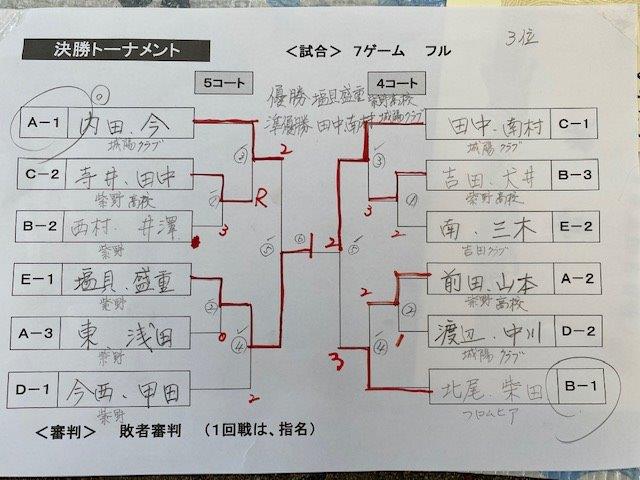 決勝トーナメント
＜試合＞ 7ゲーム フル
3位
5コート
4コート
優勝 塩貝盛重 紫野高校
準優勝 田中南村 城陽クラブ
A-1 内田.今
城陽クラブ
C-2 寺井.田中
紫野高校
B-2 西村.井澤
紫野
E-1 塩貝.盛重
紫野
A-3 東 浅田
紫野
D-1 今西.甲田
紫野
田中.南村 C-1
城陽クラブ
吉田.犬井 B-3
紫野高校
南.三木 E-2
吉田クラブ
前田.山本 A-2
紫野高校
渡辺.中川 D-2
城陽クラブ
北尾.柴田 B-1
フロムヒア
2
R
3
0
2
2
3
2
2
1
3
①
②
③
④
⑤
⑥
＜審判＞ 敗者審判 （1回戦は、指名）